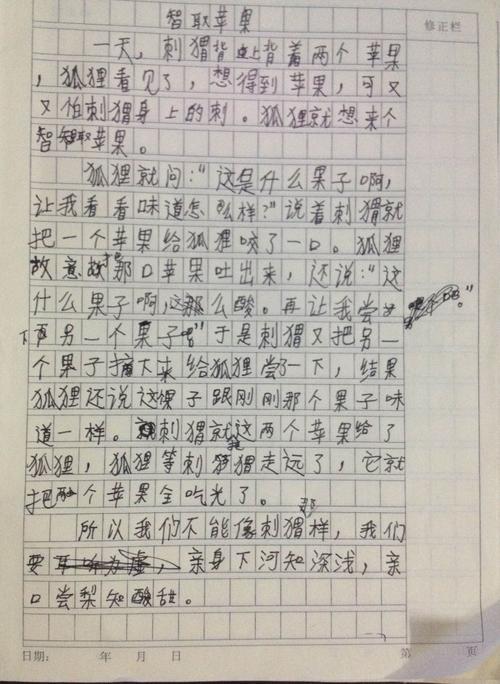 智取苹果
修正栏
一天，刺猬背上背着两个苹果
，狐狸看见了，想得到苹果，可又
又怕刺猬身上的刺。狐狸就想来个
智取苹果。
狐狸就问：“这是什么果子啊，
让我看看味道怎么样？”说着刺猬就
把一个苹果给狐狸咬了一口。狐狸
故意把那口苹果吐出来，还说：“这
什么果子啊，这那么酸。再让我尝
下另一个果子吧”于是刺猬又把另一
个果子摘下来给狐狸尝了一下，结果
狐狸还说这课子跟刚刚那个果子味
道一样。刺猬就这两个苹果给了
狐狸，狐狸等刺猬走远了，它就
把两个苹果全吃光了。
所以我们不能像刺猬那样，我们
要亲身下河知深浅，亲
口尝梨知酸甜。
日期： 年 月 日 第 页